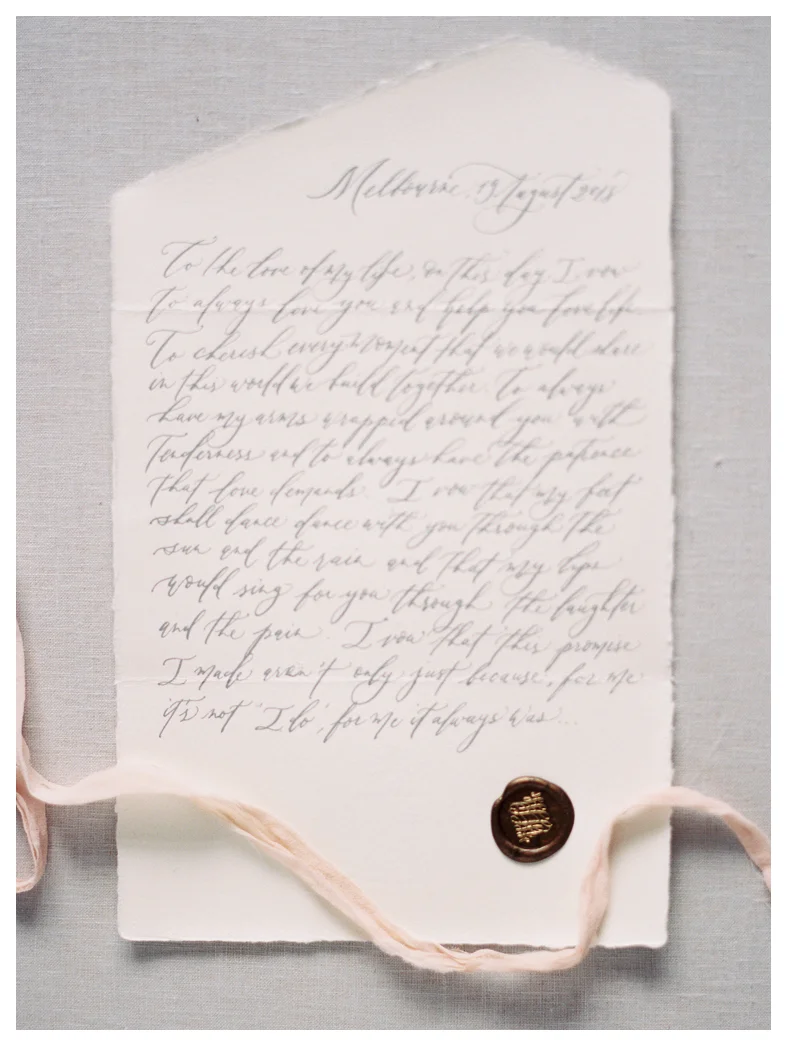 Melbourne, 19 August 2018
To the love of my life, on this day I vow
to always love you and help you love life
To cherish every moment that we would share
in this world we build together. To always
have my arms wrapped around you with
Tenderness and to always have the patience
that love demands. I vow that my feet
shall dance dance with you through the
sun and the rain and that my lips
would sing for you through the laughter
and the pain. I vow that this promise
I made aren't only just because, for me
it's not 'I do', for me it always was...